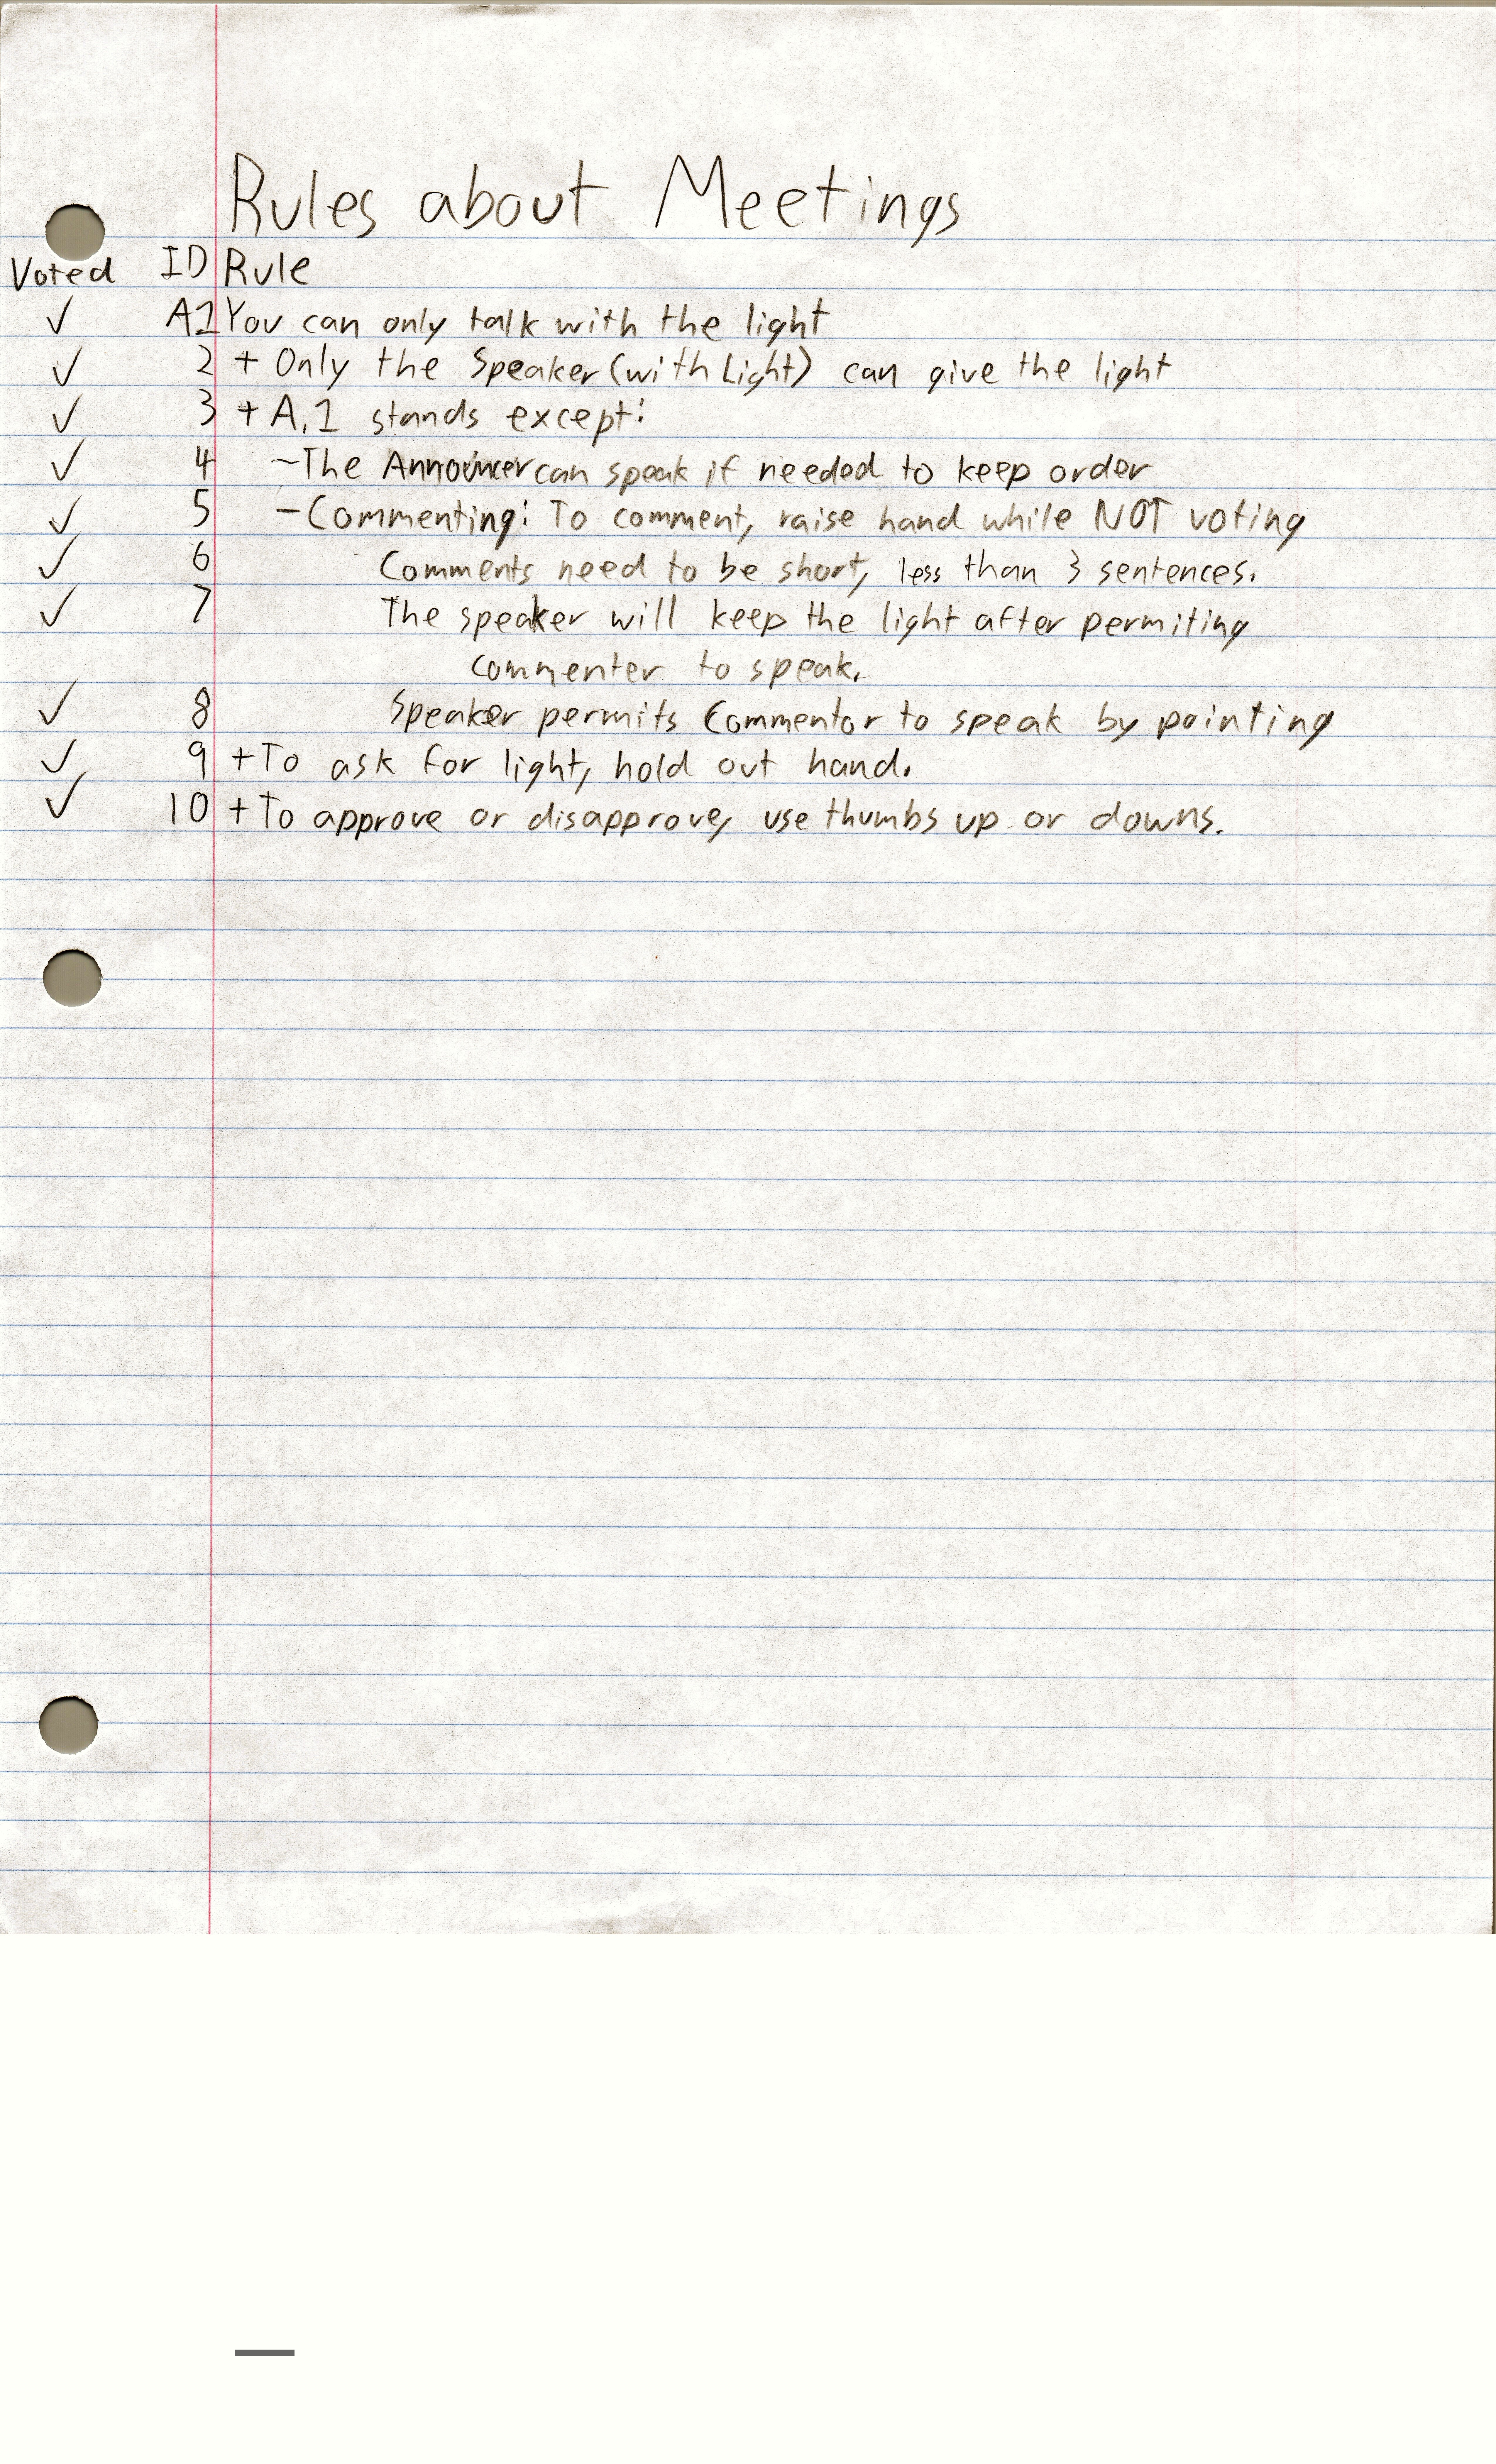 Rules about Meetings
Voted ID Rule
✓ A1 You can only talk with the light
✓ 2 + Only the Speaker (with Light) can give the light
✓ 3 + A.1 stands except:
✓ 4 ~The Announcer can speak if needed to keep order
✓ 5 -Commenting: To comment, raise hand while NOT voting
✓ 6 Comments need to be short, less than 3 sentences.
✓ 7 The speaker will keep the light after permiting
commenter to speak.
✓ 8 Speaker permits Commentor to speak by pointing
✓ 9 +To ask for light, hold out hand.
✓ 10 +To approve or disapprove, use thumbs up or downs.